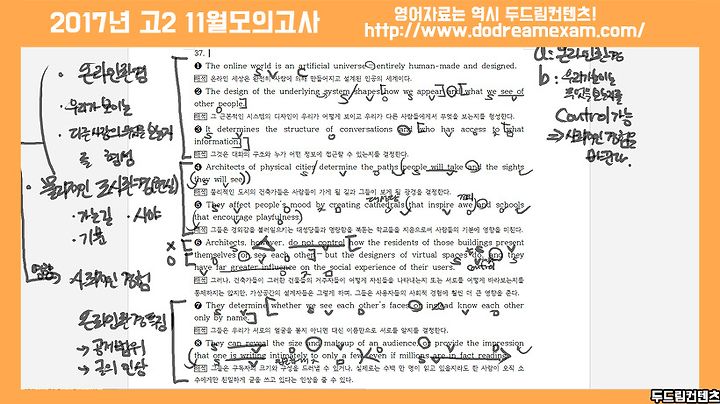 2017년 고2 11월모의고사
영어자료는 역시 두드림컨텐츠!
http://www.dodreamexam.com/
37.
❶ The online world is an artificial universe entirely human-made and designed.
해석 온라인 세상은 완전히 사람에 의해 만들어지고 설계된 인공의 세계이다.
❷ The design of the underlying system shapes how we appear and what we see of
other people.
해석 그 근본적인 시스템의 디자인이 우리가 어떻게 보이고 우리가 다른 사람들에게서 무엇을 보는지를 형성한다.
❸ It determines the structure of conversations and who has access to what
information.
해석 그것은 대화의 구조와 누가 어떤 정보에 접근할 수 있는지를 결정한다.
❹ Architects of physical cities determine the paths people will take and the sights
they will see.
해석 물리적인 도시의 건축가들은 사람들이 가게 될 길과 그들이 보게 될 광경을 결정한다.
❺ They affect people's mood by creating cathedrals that inspire awe and schools
that encourage playfulness.
해석 그들은 경외감을 불러일으키는 대성당들과 명랑함을 북돋는 학교들을 지음으로써 사람들의 기분에 영향을 미친다.
❻ Architects, however, do not control how the residents of those buildings present
themselves or see each other but the designers of virtual spaces do, and they
have far greater influence on the social experience of their users.
해석 그러나, 건축가들이 그러한 건물들의 거주자들이 어떻게 자신들을 나타내는지 또는 서로를 어떻게 바라보는지를
통제하지는 않지만, 가상공간의 설계자들은 그렇게 하며, 그들은 사용자들의 사회적 경험에 훨씬 더 큰 영향을 준다.
❼ They determine whether we see each other's faces or instead know each other
only by name.
해석 그들은 우리가 서로의 얼굴을 볼지 아니면 대신 이름만으로 서로를 알지를 결정한다.
❽ They can reveal the size and makeup of an audience, or provide the impression
that one is writing intimately to only a few even if millions are in fact reading.
해석 그들은 구독자의 크기와 구성을 드러낼 수 있거나, 실제로는 수백 만 명이 읽고 있을지라도 한 사람이 오직 소
수에게만 친밀하게 글을 쓰고 있다는 인상을 줄 수 있다.
· 온라인환경
· 가는길 · 시야
· 기분
사회적인 경험
a: 온라인환경
Control 가능
두드림컨텐츠